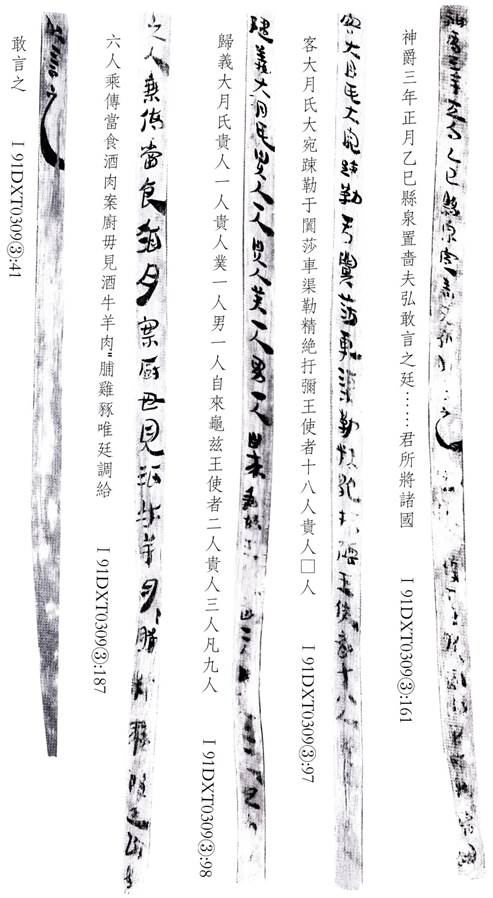 神爵三年正月乙巳縣泉置嗇夫弘敢言之廷……君所將諸國
I 91DXT0309③:161
客大月氏大宛踈勒于闐莎車渠勒精絶扜彌王使者十八人貴人□人
I 91DXT0309③:97
歸義大月氏貴人一人貴人䒑一人男一人自來龜兹王使者二人貴人三人凡九人
I 91DXT0309③:98
六人乘傳當食酒肉案廚毋見酒牛羊肉〓脯雞豚唯廷調給
I 91DXT0309③:187
敢言之
I 91DXT0309③:41